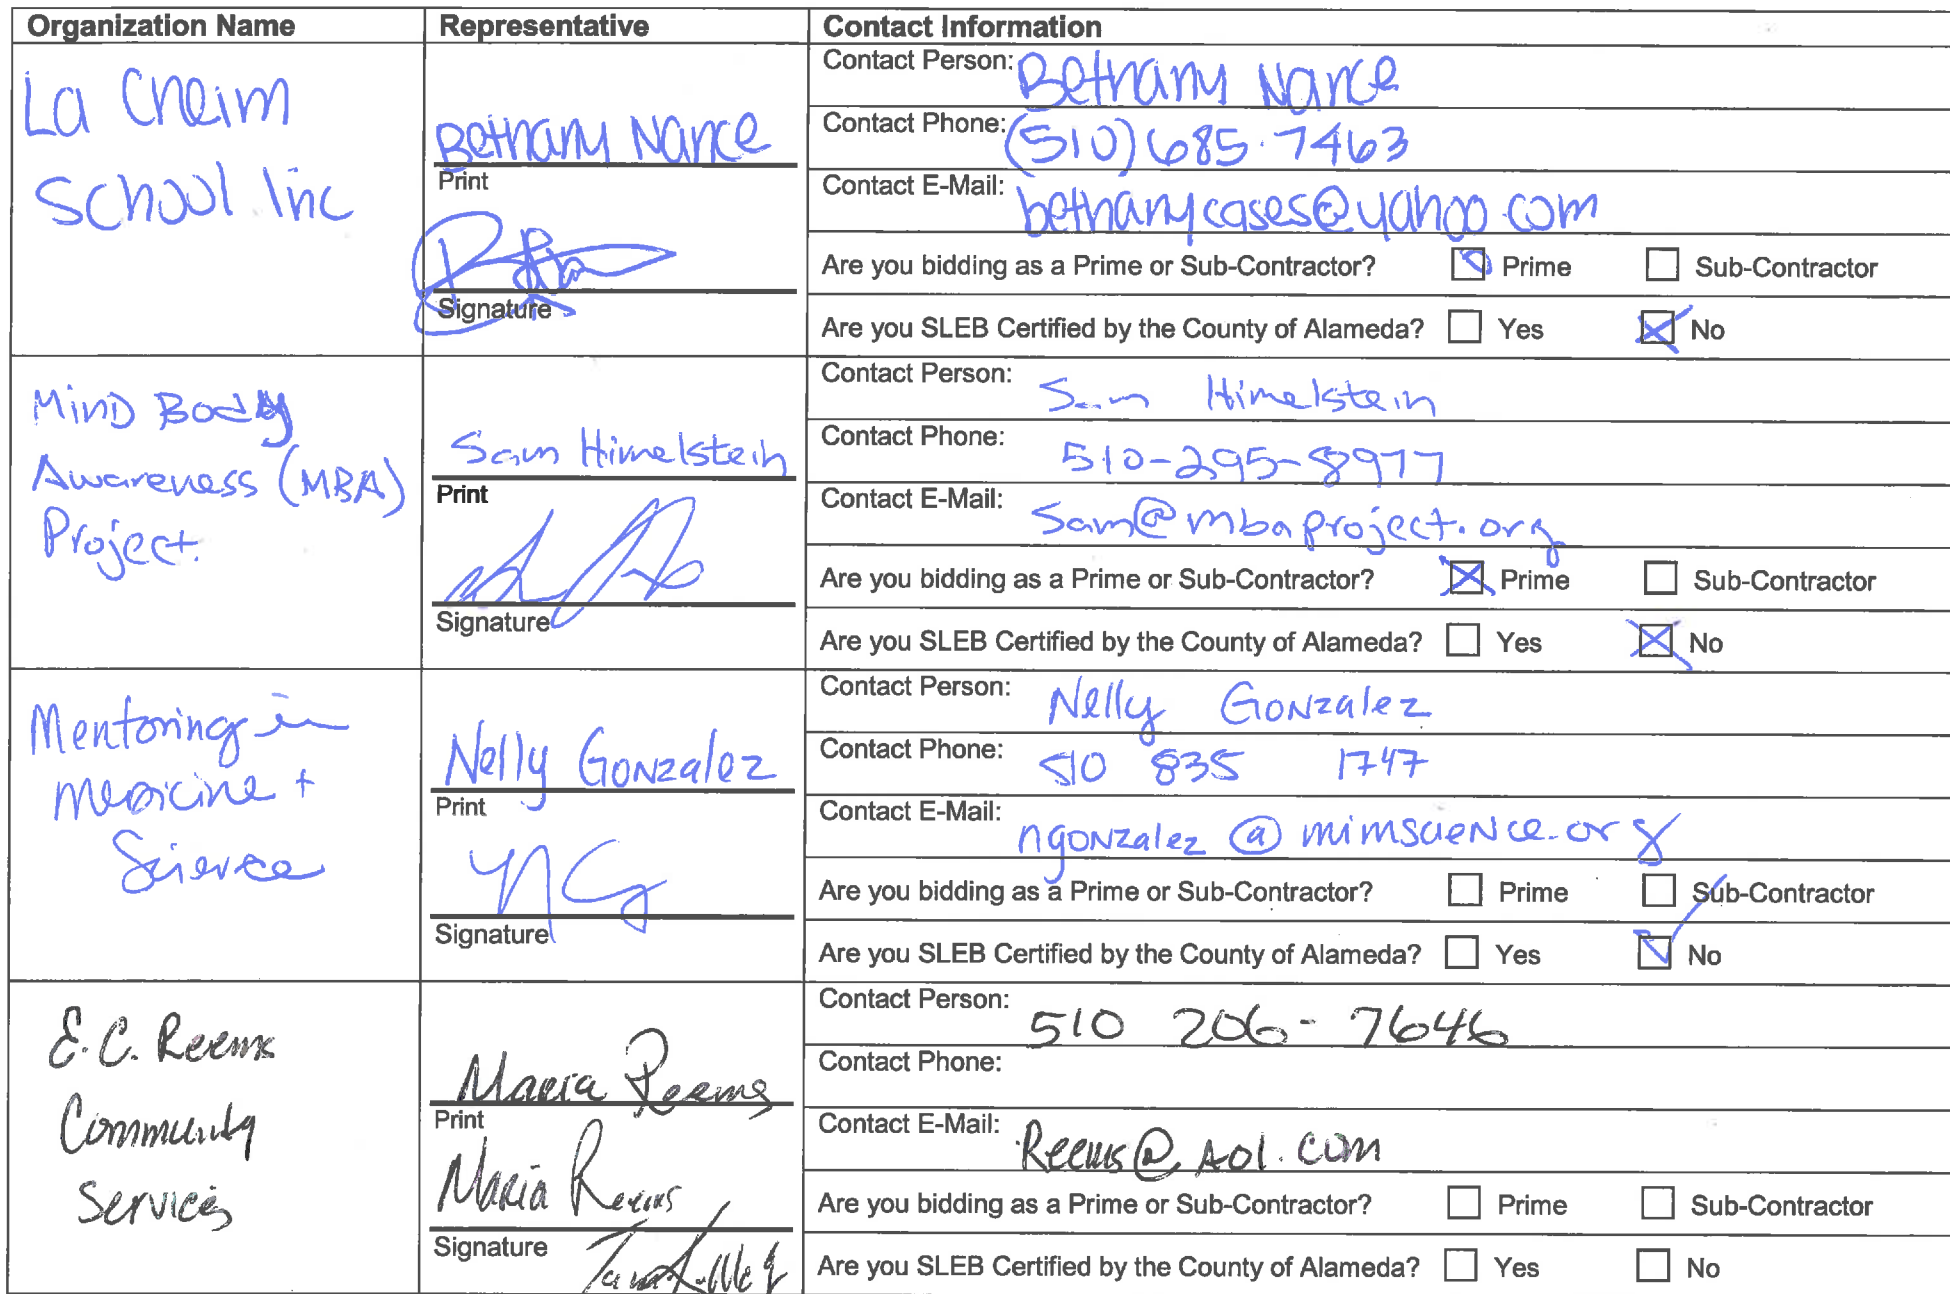 Organization Name Representative Contact Information
La Cheim
School Inc
Bethany Nance
Print
Signature
Contact Person: Bethany Nance
Contact Phone: (510) 685-7463
Contact E-Mail: bethanycases@yahoo.com
Are you bidding as a Prime or Sub-Contractor? Prime Sub-Contractor
Are you SLEB Certified by the County of Alameda? Yes No
Mind Body
Awareness (MBA)
Project.
Sam Himelstein
Print
Signature
Contact Person: Sam Himelstein
Contact Phone: 510-295-8977
Contact E-Mail: Sam@mbaproject.org
Are you bidding as a Prime or Sub-Contractor? Prime Sub-Contractor
Are you SLEB Certified by the County of Alameda? Yes No
Mentoring in
Medicine +
Science
Nelly Gonzalez
Print
NG
Signature
Contact Person: Nelly Gonzalez
Contact Phone: 510 835 1747
Contact E-Mail: ngonzalez@mimscience.org
Are you bidding as a Prime or Sub-Contractor? Prime Sub-Contractor
Are you SLEB Certified by the County of Alameda? Yes No
E.C. Reems
Community
Services
Maria Reems
Print
Maria Reems
Signature
Contact Person: 510 206-7646
Contact Phone:
Contact E-Mail: Reems@AOL.com
Are you bidding as a Prime or Sub-Contractor? Prime Sub-Contractor
Are you SLEB Certified by the County of Alameda? Yes No